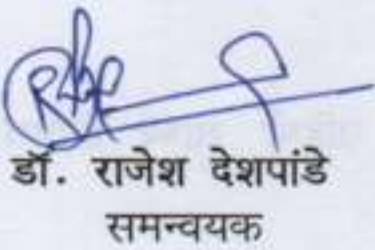 डॉ. राजेश देशपांडे
समन्वयक